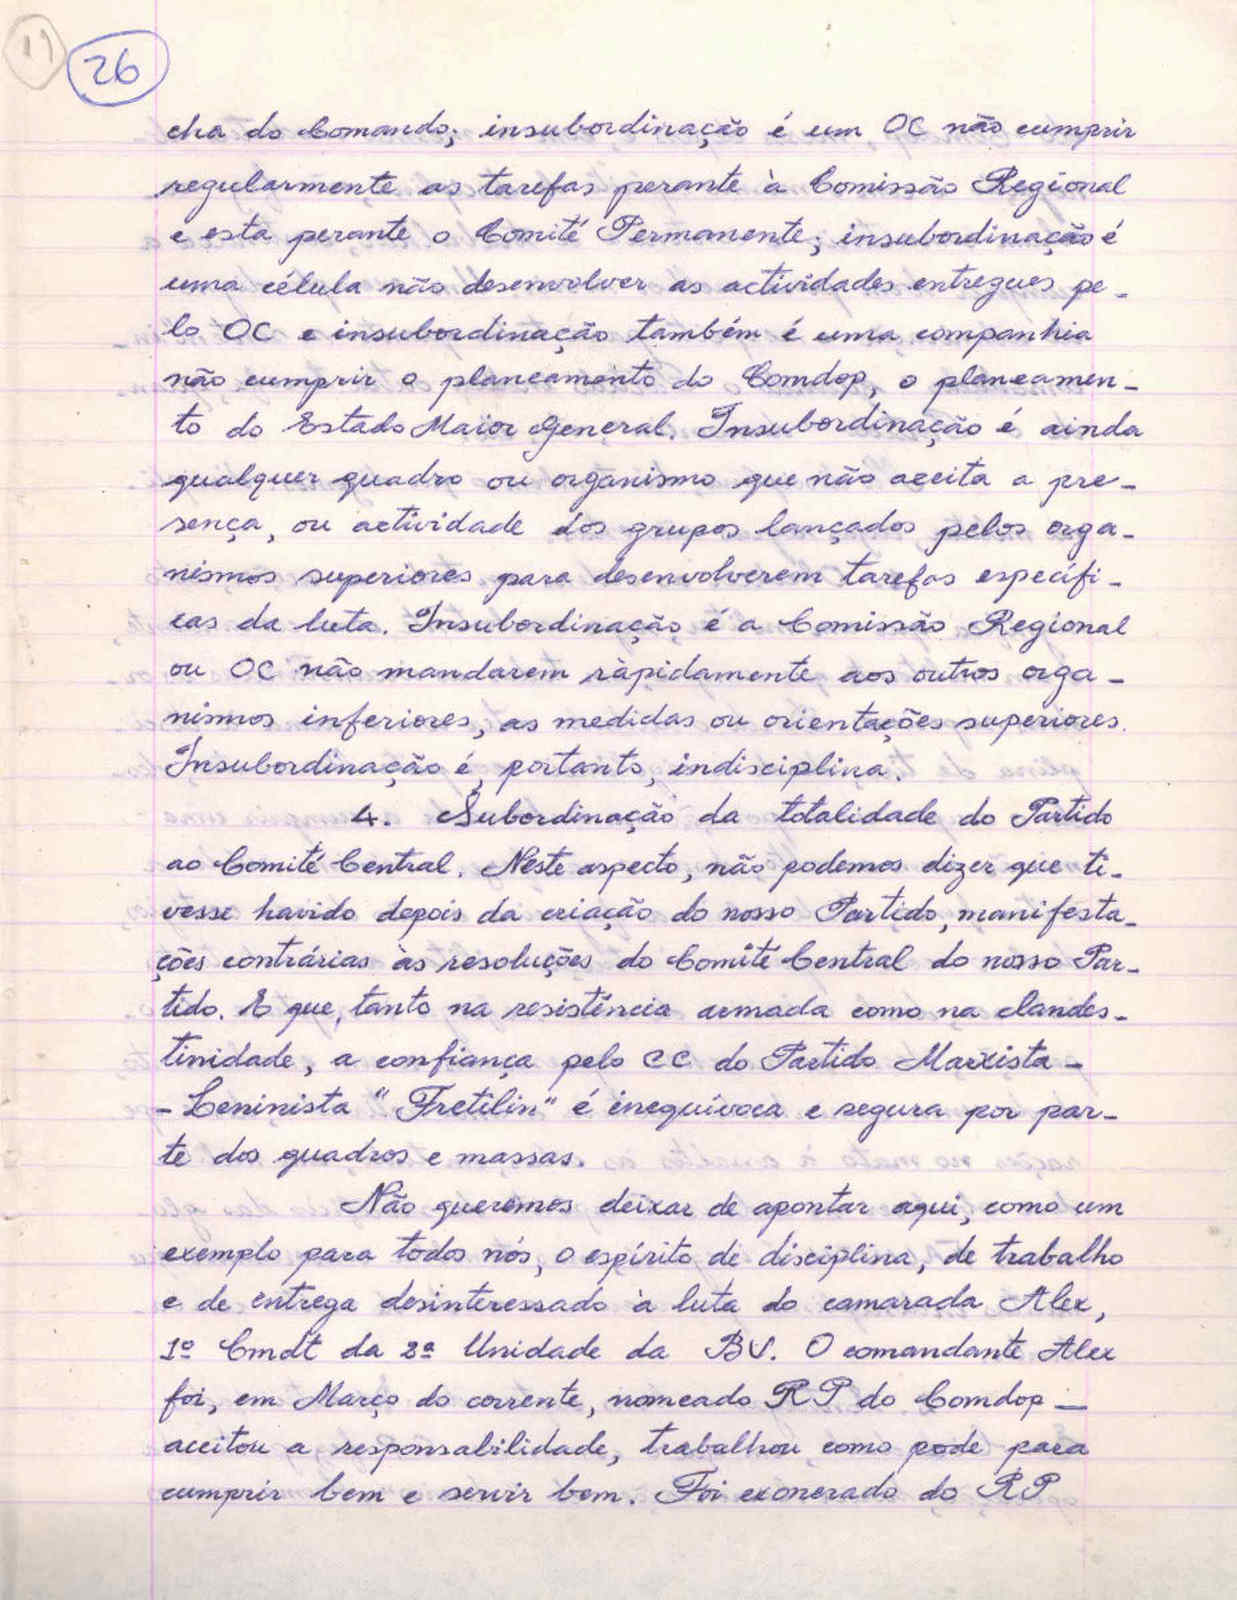 11
26
cha do Comando; insubordinação é um OC não cumprir
regularmente as tarefas perante à Comissão Regional
e esta perante o Comité Permanente; insubordinação é
uma célula não desenvolver as actividades entregues pe-
lo OC e insubordinação também é uma companhia
não cumprir o planeamento do Comdop, o planeamen-
to do Estado Maior General. Insubordinação é ainda
qualquer quadro ou organismo que não aceita a pre-
sença, ou actividade dos grupos lançados pelos orga-
nismos superiores para desenvolverem tarefas específi-
cas da luta. Insubordinação é a Comissão Regional
ou OC não mandarem ràpidamente aos outros orga-
nismos inferiores, as medidas ou orientações superiores.
Insubordinação é, portanto, indisciplina.
4. Subordinação da totalidade do Partido
ao Comité Central. Neste aspecto, não podemos dizer que ti-
vesse havido depois da criação do nosso Partido, manifesta-
ções contrárias às resoluções do Comité Central do nosso Par-
tido. E que, tanto na resistência armada como na clandes-
tinidade, a confiança pelo CC do Partido Marxista-
-Leninista "Fretilin" é inequívoca e segura por par-
te dos quadros e massas.
Não queremos deixar de apontar aqui, como um
exemplo para todos nós, o espírito de disciplina, de trabalho
e de entrega desinteressado à luta do camarada Alex,
1º Cmdt da 2ª Unidade da BV. O comandante Alex
foi, em Março do corrente, nomeado RP do Comdop —
aceitou a responsabilidade, trabalhou como pode para
cumprir bem e servir bem. Foi exonerado do RP